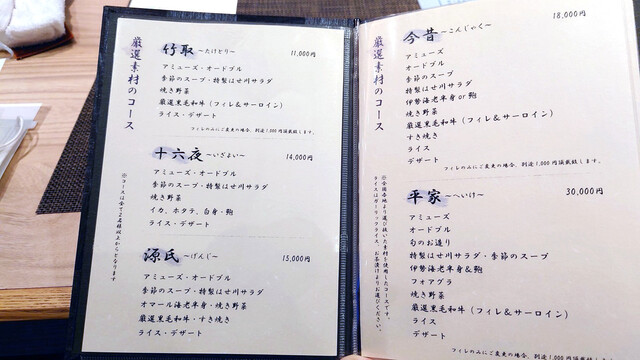 厳選素材のコース
竹取 ～たけとり～ 11,000円
アミューズ・オードブル
季節のスープ・特製はせ川サラダ
焼き野菜
厳選黒毛和牛（フィレ&サーロイン）
ライス・デザート
フィレのみにご変更の場合、別途1,000円頂戴致します。
十六夜 ～いざよい～ 14,000円
アミューズ・オードブル
季節のスープ・特製はせ川サラダ
焼き野菜
イカ、ホタテ、白身・鮑
ライス・デザート
源氏 ～げんじ～ 15,000円
アミューズ・オードブル
季節のスープ・特製はせ川サラダ
オマール海老半身・焼き野菜
厳選黒毛和牛・すき焼き
ライス・デザート
※コースは全て2名様以上からとなります
厳選素材のコース
今昔 ～こんじゃく～ 18,000円
アミューズ
オードブル
季節のスープ
特製はせ川サラダ
伊勢海老半身or鮑
焼き野菜
厳選黒毛和牛（フィレ&サーロイン）
すき焼き
ライス
デザート
フィレのみにご変更の場合、別途1,000円頂戴致します。
平家 ～へいけ～ 30,000円
アミューズ
オードブル
旬のお造り
特製はせ川サラダ・季節のスープ
伊勢海老半身&鮑
フォアグラ
焼き野菜
厳選黒毛和牛（フィレ&サーロイン）
ライス
デザート
フィレのみにご変更の場合、別途1,000円頂戴致します。
※全国各地より選び抜いた素材を使用したコースです。
ライスはガーリックライス、お茶漬けよりお選びください。